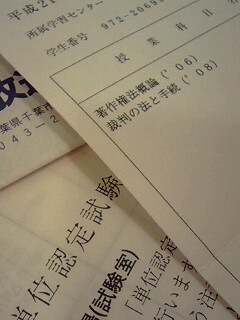 平成21
所属学習センター
学生番号 972-20693
授業科目名
著作権法概論('06)
裁判の法と手続('08)
葉県千葉市
043-2
単位認定試験
(試験室)
「単位認定
行います
う注